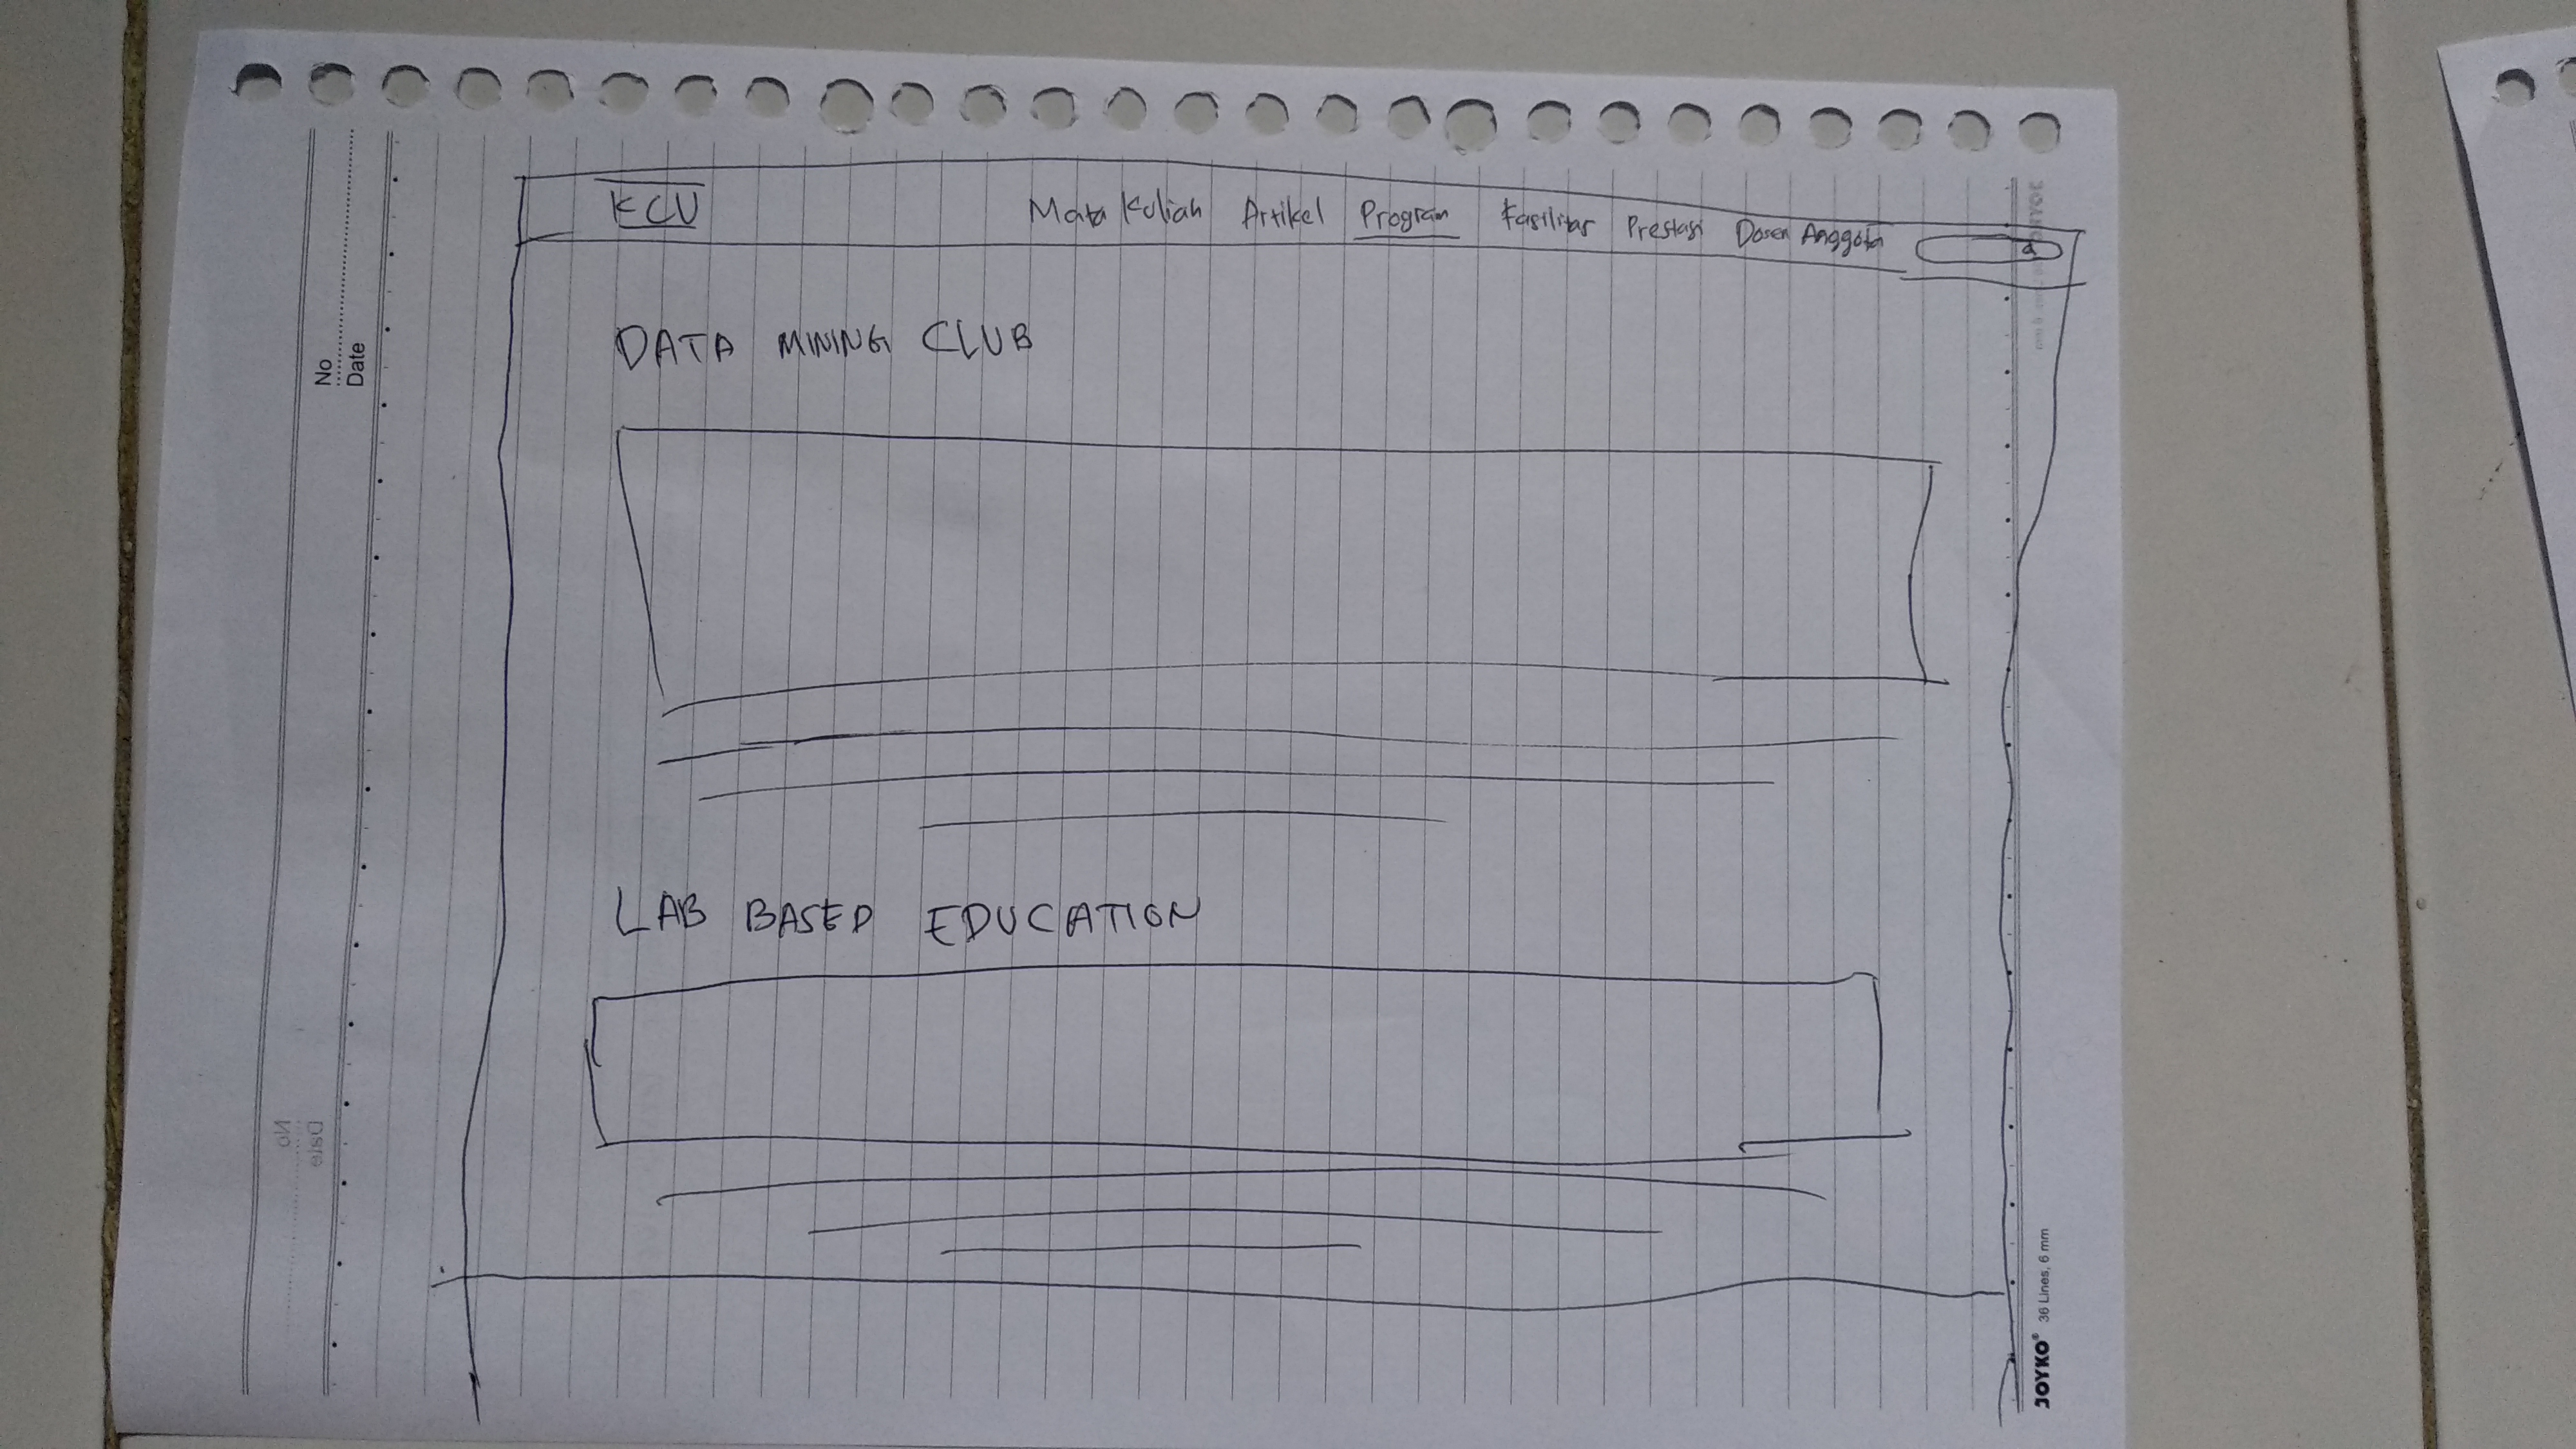 KCV Mata Kuliah Artikel Program Fasilitas Prestasi Dosen Anggota
DATA MINING CLUB
LAB BASED EDUCATION
No
Date
No
Date
JOYKO® 36 Lines, 6 mm